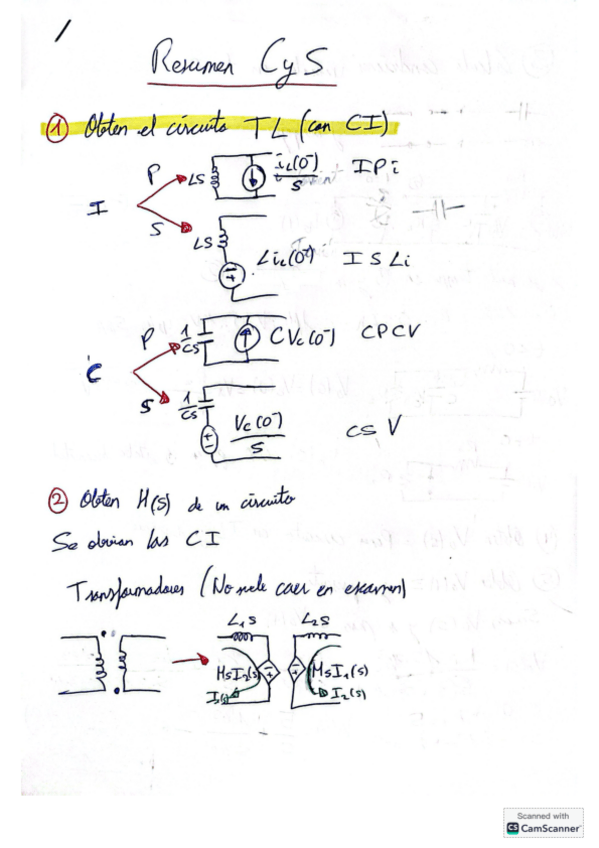 1
Resumen CyS
① Obten el circuito TL (con CI)
P LS iL(0⁻)/S IPi
I
S LS LiL(0⁻) ISLi
P 1/CS CVc(0⁻) CPCV
C
S 1/CS Vc(0⁻)/S CS V
② Obten H(s) de un circuito
Se obvian las CI
Transformadores (No suele caer en examen)
L₁S L₂S
MSI₂(s) MSI₁(s)
I₁(s) I₂(s)
Scanned with
CS CamScanner